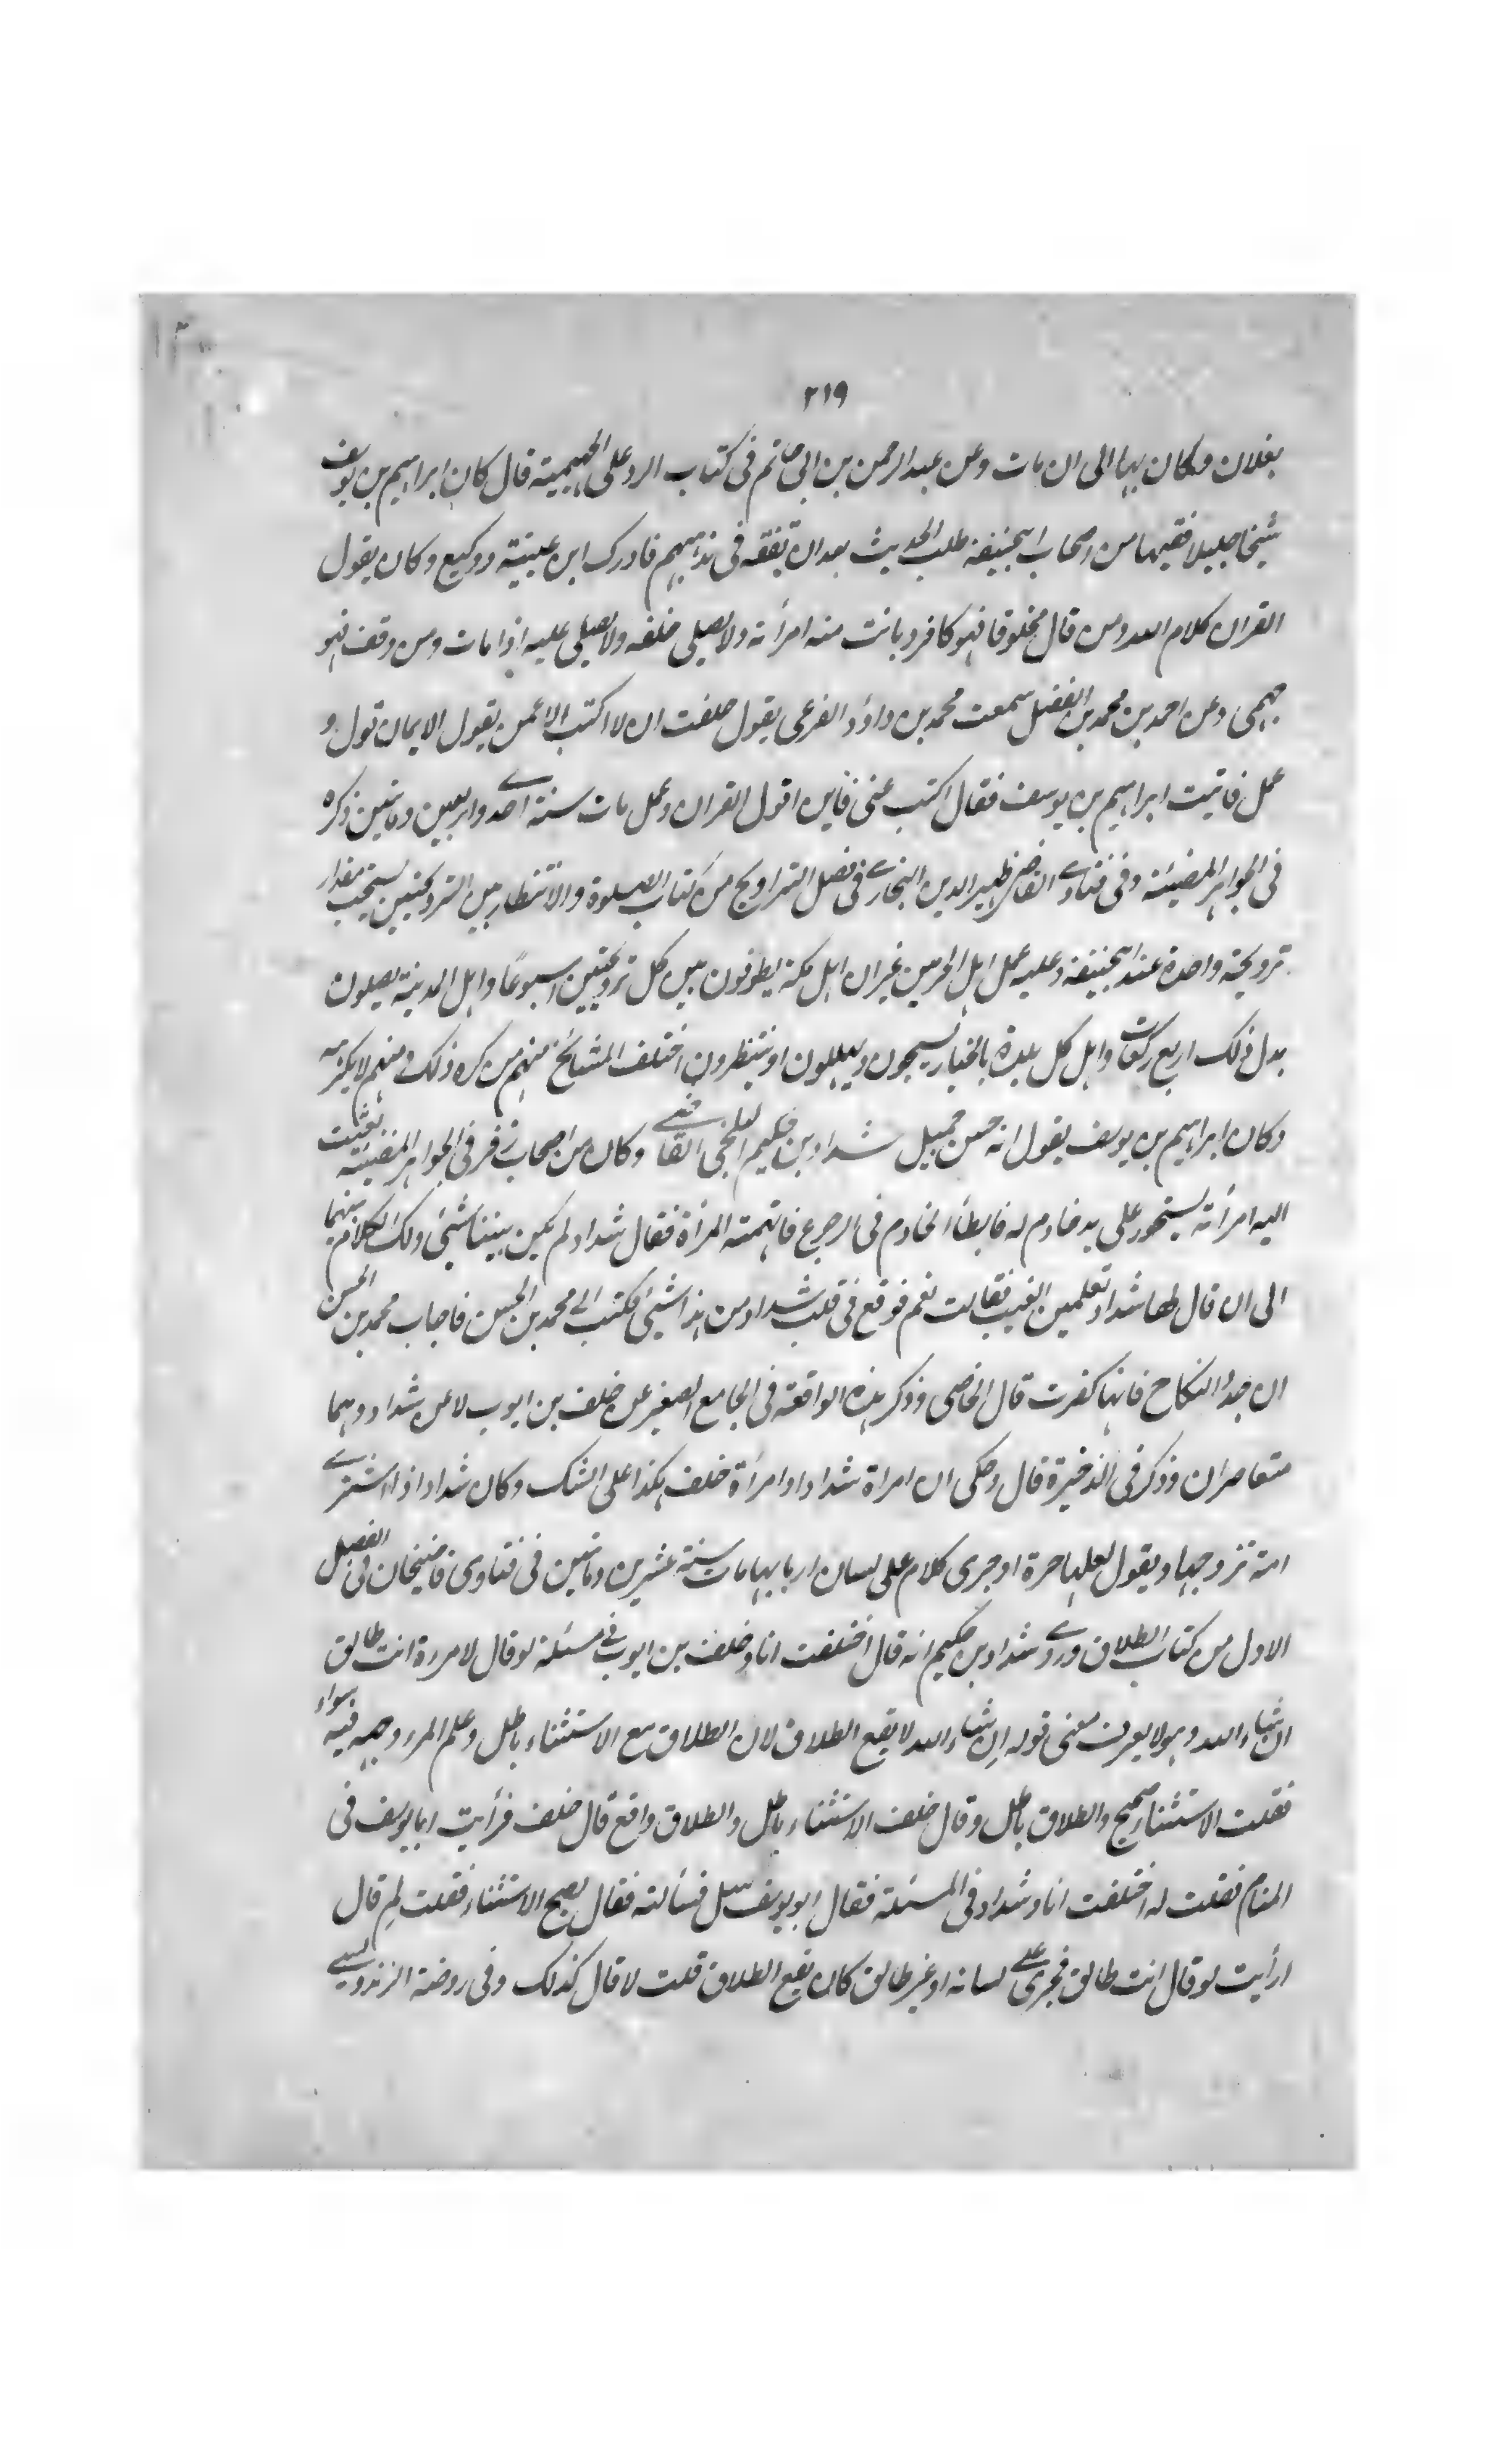 ٢١٩
بغلان وكان بها الى ان مات وعن عبد الرحمن بن ابى حاتم فى كتاب الرد على الجهمية قال كان ابراهيم بن يوسف
شيخا جليلا فقيها من اصحاب ابيحنيفة طلب الحديث بعد ان تفقه فى مذاهبهم فادرك ابن عيينة ووكيع وكان يقول
القران كلام الله ومن قال مخلوق فهو كافر وبانت منه امرأته ولا يصلى خلفه ولا يصلى عليه اذا مات ومن وقف فهو
جهمى وعن احمد بن محمد بن الفضل سمعت محمد بن داؤد الفرعى يقول حلفت ان لا اكتب الا عمن يقول الايمان قول و
عمل فاتيت ابراهيم بن يوسف فقال اكتب عنى فانى اقول القران وعمل مات سنة احدى واربعين ومائتين ذكره
فى الجواهر المضيئة وفى فتاوى القاضى ظهير الدين البخارى فى فصل التراويح من كتاب الصلوة والانتظار بين الترويحتين يستحب مقدار
ترويحة واحدة عند ابيحنيفة وعليه عمل اهل الحرمين غير ان اهل مكة يطوفون بين كل ترويحتين اسبوعًا واهل المدينة يصلون
بدل ذلك اربع ركعات واهل كل بلدة بالخيار يسبحون ويهللون او ينتظرون اختلف المشائخ منهم من كره ذلك ومنهم لا يكره
وكان ابراهيم بن يوسف يقول انه حسن جميل شداد بن حكيم البلخى القاضى وكان من اصحاب زفر فى الجواهر المضيئة بعثت
اليه امرأته بسحور على يد خادم له فابطأ الخادم فى الرجوع فاتهمته المرأة فقال شداد لم يكن بيننا شيئ وذلك الكلام بينهما
الى ان قال لها شداد تعلمين الغيب فقالت نعم فوقع فى قلب شداد من هذا شيئ فكتب الى محمد بن الحسن فاجاب محمد بن الحسن
ان جدد النكاح فانها كفرت قال الخاصى وذكر هذه الواقعة فى الجامع الصغير عن خلف بن ايوب لا عن شداد وهما
متعاصران وذكر فى الذخيرة قال وحكى ان امراة شداد او امرأة خلف هكذا على الشك وكان شداد اذا اشترى
امة تزوجها ويقول لعلها حرة او جرى كلام على لسان اربابها مات سنة عشرين ومائتين فى فتاوى قاضيخان فى الفصل
الاول من كتاب الطلاق وروى شداد بن حكيم انه قال اختلفت انا وخلف بن ايوب فى مسئلة لو قال لامرءة انت طالق
ان شاء الله وهو لا يعرف معنى قوله ان شاء الله لا يقع الطلاق لان الطلاق مع الاستثناء باطل وعلم المرء وجهه فيه سواء
فقلت الاستثناء صحيح والطلاق باطل وقال خلف الاستثناء باطل والطلاق واقع قال خلف فرأيت ابا يوسف فى
المنام فقلت له اختلفت انا وشداد فى المسئلة فقال ابو يوسف سل فسألته فقال يصح الاستثناء فقلت لِم قال
ارأيت لو قال انت طالق فجرى على لسانه او غير طالق كان يقع الطلاق قلت لا قال كذلك وفى روضة الزندويسى